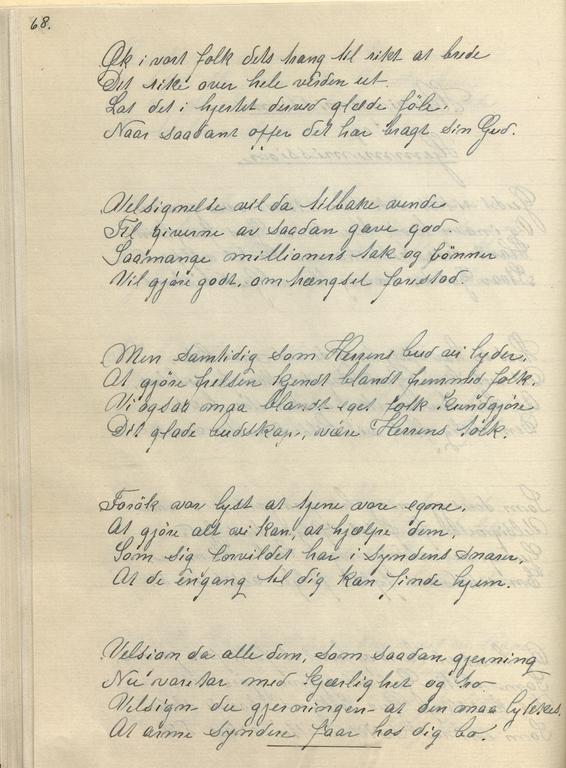 68.
Øk i vort folk dets trang til rikt at brede
Dit rike over hele verden ut.
Lat det i hjertet derved glæde føle.
Naar saadant offer det har bragt sin Gud.
Velsignelse vil da tilbake vende
Til giverne av saadan gave god
Saamange millioners tak og bønner
Vil gjøre godt, om trængsel forestod.
Men samtidig som Herrens bud vi lyder,
At gjøre frelsen kjendt blandt fremmed folk.
Vi ogsaa maa blandt eget folk kundgjøre
Det glade budskap, være Herrens tolk.
Forøk vor lyst at tjene vore egne,
At gjøre alt vi kan, at hjælpe dem,
Som sig forvildet har i syndens snarer,
At de engang til dig kan finde hjem.
Velsign da alle dem, som saadan gjerning
Nu varetar med kjærlighet og tro
Velsign du gjerningen at den maa lykkes,
At arme syndere faar hos dig bo.